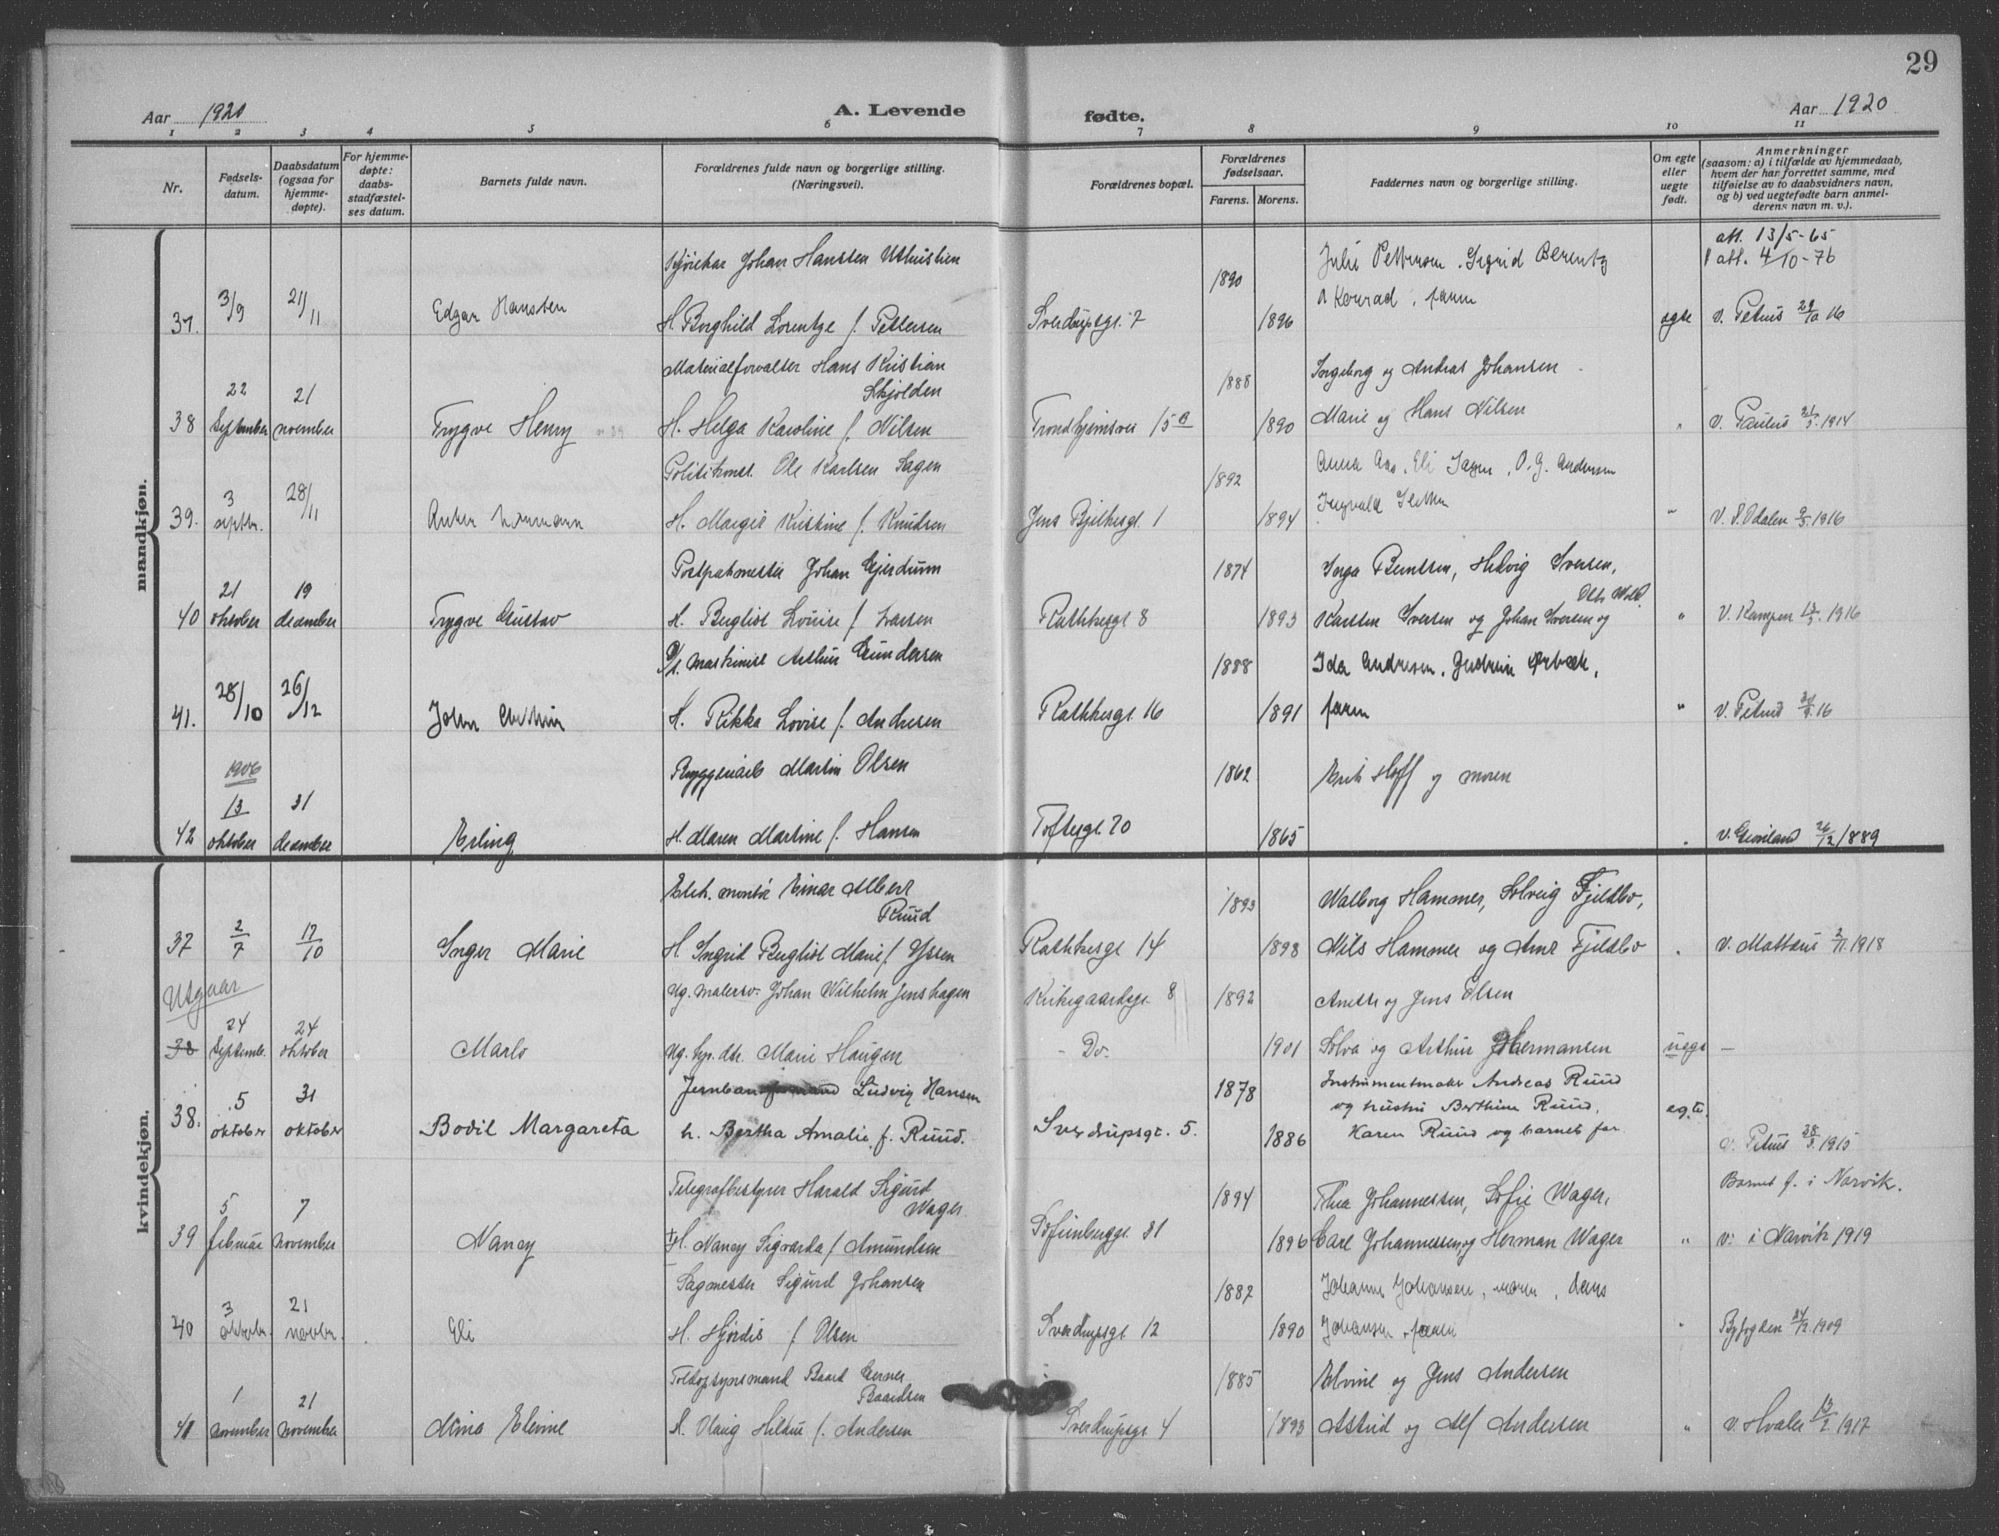 29
Aar 1920
A. Levende fødte.
Aar 1920
1 2 3 4 5 6 7 8 9 10 11
Nr.
Fødsels-
datum.
Daabsdatum
(ogsaa for
hjemme-
døpte).
For hjemme-
døpte:
daabs-
stadfæstel-
ses datum.
Barnets fulde navn.
Forældrenes fulde navn og borgerlige stilling.
(Næringsvei).
Forældrenes bopæl.
Forældrenes
fødselsaar.
Farens. Morens.
Faddernes navn og borgerlige stilling.
Om egte
eller
uegte
født.
Anmerkninger
(saasom: a) i tilfælde av hjemmedaab,
hvem der har forrettet samme, med
tilføielse av to daabsvidners navn,
og b) ved uegtefødte barn anmel-
derens navn m. v.).
mandkjøn.
Johan Hansten 1890 Petersen . Sigrid att. 13/5-65
Konrad, faren att. 4/10-76
37. 3/9 21/11 Edgar Hansten H Borghild Lorentze f. Pettersen Sverdrupsgt. 7 1896 egte v. Petrus 29/10 16
Materialforvalter Hans Kristian 1888 Ingeborg og Andreas Johansen
Skjolden
38 22 september 21 november Trygve Henry H. Helga Karoline f. Nilsen Trondhjemsvei 15 B 1890 Marie og Hans Nilsen " v. Paulus 1914
Politikonst. Ole Karlsen Sagen 1892 Anna Aas, Eli Sagen, O. G. Andersen
39. 3 septbr. 28/11 H. Margit Kristine f. Knudsen Jens Bjelkesgt 1 1894 " v. S. Odalen 1916
Johan Gjerdrum 1874 Inga Berntsen, Hedvig Iversen,
40 21 oktober 19 december Trygve Gustav H. Berglist Louise f. Larsen Rathkesgt 8 1893 Karsten Iversen og Johan Iversen og " v. Kampen 1916
maskinist Arthur Gundersen 1888 Ida Andresen,
41. 28/10 26/12 John H. Rikka Lovise f. Andresen Rathkesgt 16 1891 faren " v. Petrus 16
1906 Martin Olsen 1862 Erik Hoff og moren
42 13 oktober 31 december Erling H. Maren Martine f. Hansen Toftesgt. 70 1865 " v. Grønland 26/12 1889
kvindekjøn.
Elek. montør Einar Albert 1893 Walborg Hammer, Solveig Fjeldbo,
Ruud
37 2/7 17/10 Inger Marie H Ingrid Berglist Marie f. Rathkesgt 14 1898 Nils Hammer og Arne Fjeldbo " v. Mattæus 1918
Utgaar Ug. malersv. Johan Wilhelm Jenshagen Kirkegaardsgt. 8 1892 Anette og Jens Olsen
38 24 septemb. 24 oktober Marlo Ug. Marie Haugen - Do. 1901 Solva og Arthur Hermansen uegt -
Ludvig Hansen 1878 Instrumentmaker Andreas Ruud
og hustru Berthine Ruud.
38. 5 oktober 31 oktober Bodil Margareta h. Bertha Amalie f. Ruud. Sverdrupsgt. 5. 1886 Karen Ruud og barnets far egte. v. Petrus 1915
Telegrafbestyrer Harald Sigurd 1894 Thea Johannessen, Sofie Wager, Barnet f. i Narvik.
Wager
39 5 februar 7 november Nancy H. Nancy Sigvarda f. Amundsen Sofienberggt. 31 1896 Carl Johannessen og Herman Wager " v. i Narvik 1919
Sagmester Sigurd Johansen 1887 Johanne Johansen, moren,
40 3 oktobr. 21 novbr. Eli H. Hjørdis f. Olsen Sverdrupsgt 12 1890 Johansen, faren " Byfogden 1909
Toldopsynsmand Baard 1885 Elvine og Jens Andersen
Baardsen
41 1 november 21 november H. f. Andersen Sverdrupsgt 4 1893 Astrid og Alf Andersen " v. Hvaler 1917